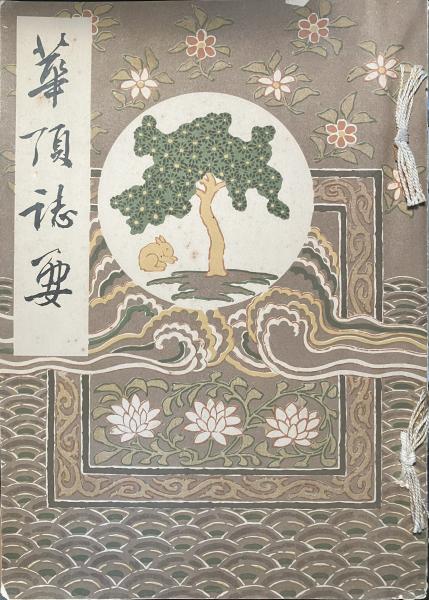 華頂誌要